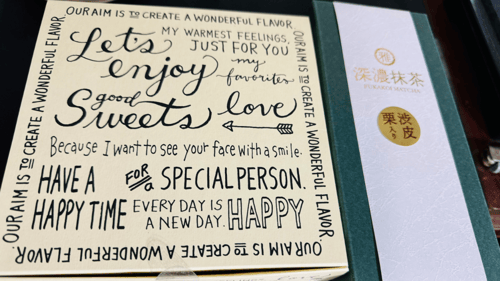 OUR AIM IS TO CREATE A WONDERFUL FLAVOR
OUR AIM IS TO CREATE A WONDERFUL FLAVOR
MY WARMEST FEELINGS,
JUST FOR YOU
Let's
enjoy
my
favorites
good
Sweets
love
Because I want to see your face with a smile.
HAVE A
HAPPY TIME
FOR a
SPECIAL PERSON.
EVERY DAY IS
A NEW DAY.
HAPPY
OUR AIM IS TO CREATE A WONDERFUL FLAVOR
OUR AIM IS TO CREATE A WONDERFUL FLAVOR
深濃抹茶
渋皮
栗入り